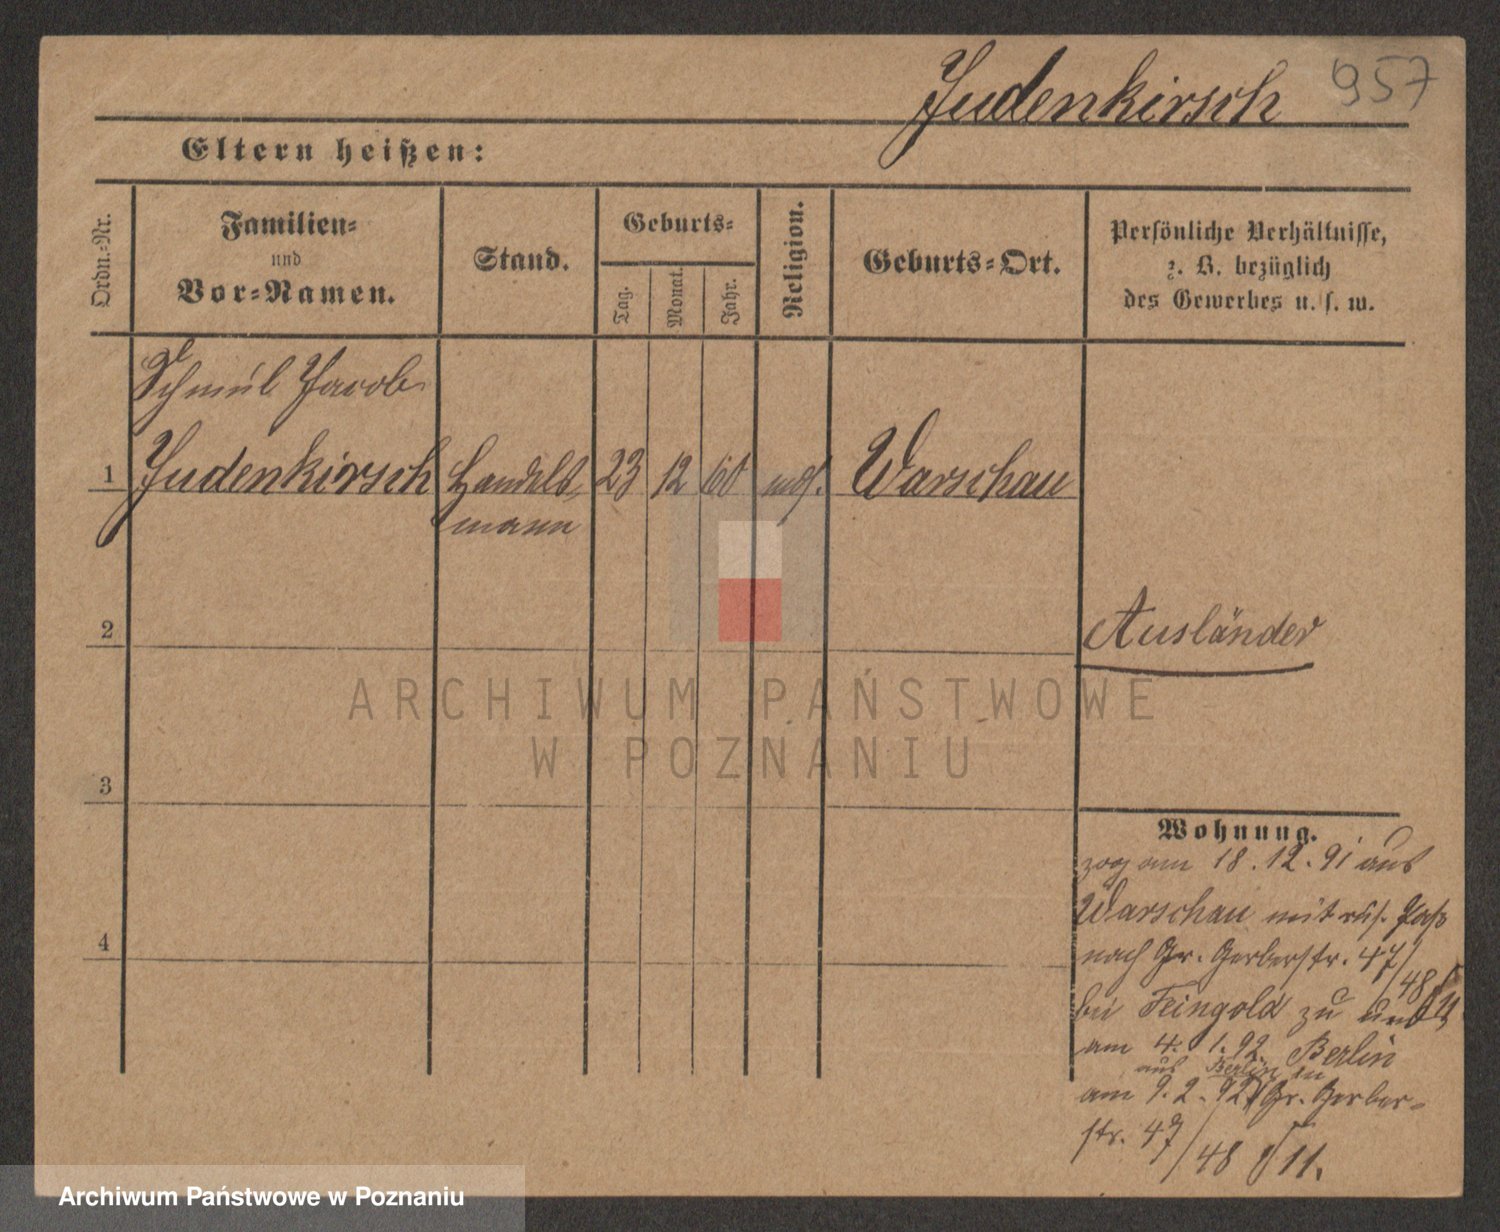 Judenkirsch 957
Eltern heißen:
Ordn.-Nr.
Familien-
und
Vor-Namen.
Stand.
Geburts-
Tag.
Monat.
Jahr.
Religion.
Geburts-Ort.
Persönliche Verhältnisse,
z. B. bezüglich
des Gewerbes u. s. w.
Schmul Jacob
1 Judenkirsch Handels- 23 12 60 mos. Warschau
mann
2
Ausländer
3
4
Wohnung.
zog am 18.12.91 aus
Warschau mit rus. Paß
nach Gr. Gerberstr. 47/
48
bei Feingold zu und
am 4.1.92 Berlin
aus Berlin in
am 9.2.92 Gr. Gerber-
str. 47
/48 11.
ARCHIWUM PAŃSTWOWE
W POZNANIU
Archiwum Państwowe w Poznaniu